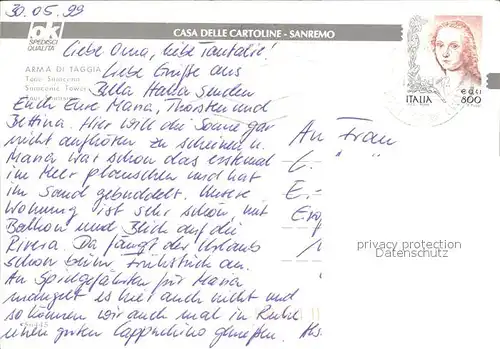 30.05.99
ok
SPEDISCI
QUALITÀ
CASA DELLE CARTOLINE - SANREMO
ARMA DI TAGGIA
Saracen Tower
ITALIA 800
Liebe Oma, liebe Tantalie!
Liebe Grüße aus
Bella Italia senden
Euch Eure Maria, Thorsten und
Bettina. Hier will die Sonne gar
nicht aufhören zu scheinen u.
Maria war schon das erstemal
im Meer planschen und hat
im Sand gebuddelt. Unsere
Wohnung ist sehr schön mit
Balkon und Blick auf die
Rivera. Da fängt der Urlaub
schon beim Frühstück an.
An Spielgefährten für Maria
mangelt es hier auch nicht und
so können wir auch mal in Ruhe
einen guten Cappuchino genießen.
An Frau
" "
privacy protection
Datenschutz